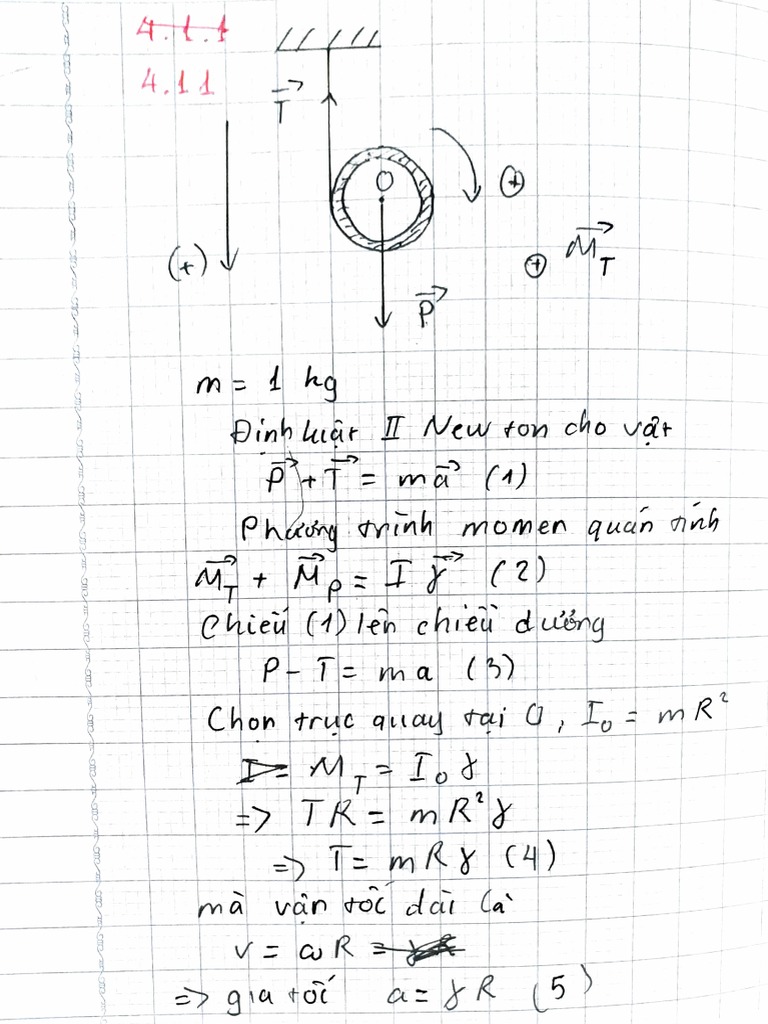 4.1.1
4.11
T
O
(+)
(+)
(+) M_T
P
m = 1 kg
Định luật II Newton cho vật
P + T = ma (1)
Phương trình momen quán tính
M_T + M_P = I γ (2)
Chiếu (1) lên chiều dương
P - T = ma (3)
Chọn trục quay tại O, I_0 = mR²
I = M_T = I_0 γ
=> TR = mR²γ
=> T = mRγ (4)
mà vận tốc dài là
v = ωR = γR
=> gia tốc a = γR (5)